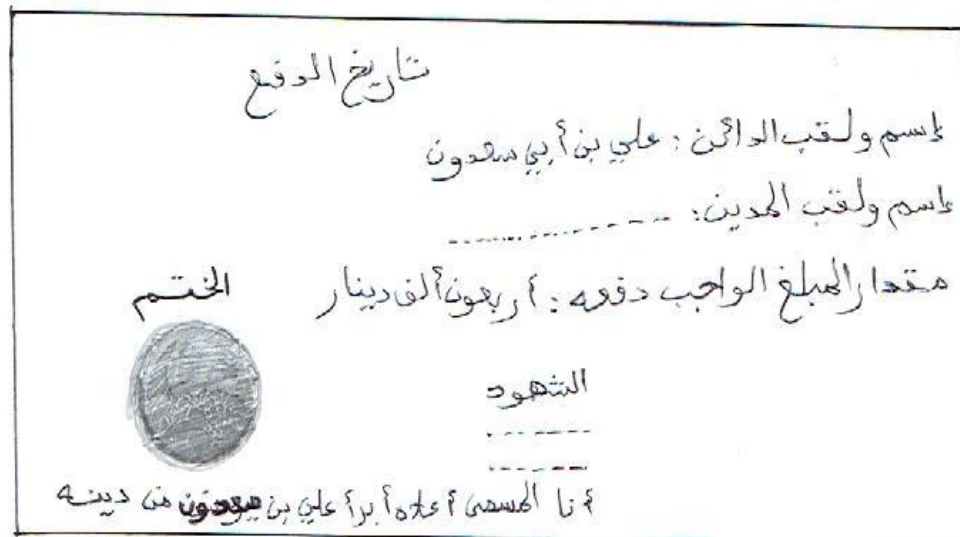 تاريخ الدفع
إسم ولقب الدائن : علي بن أبي سعدون
إسم ولقب المدين: ..................
مقدار المبلغ الواجب دفعه : أربعون ألف دينار
الختم
الشهود
..........
..........
أنا المسمى أعلاه أبرأ علي بن من دينه